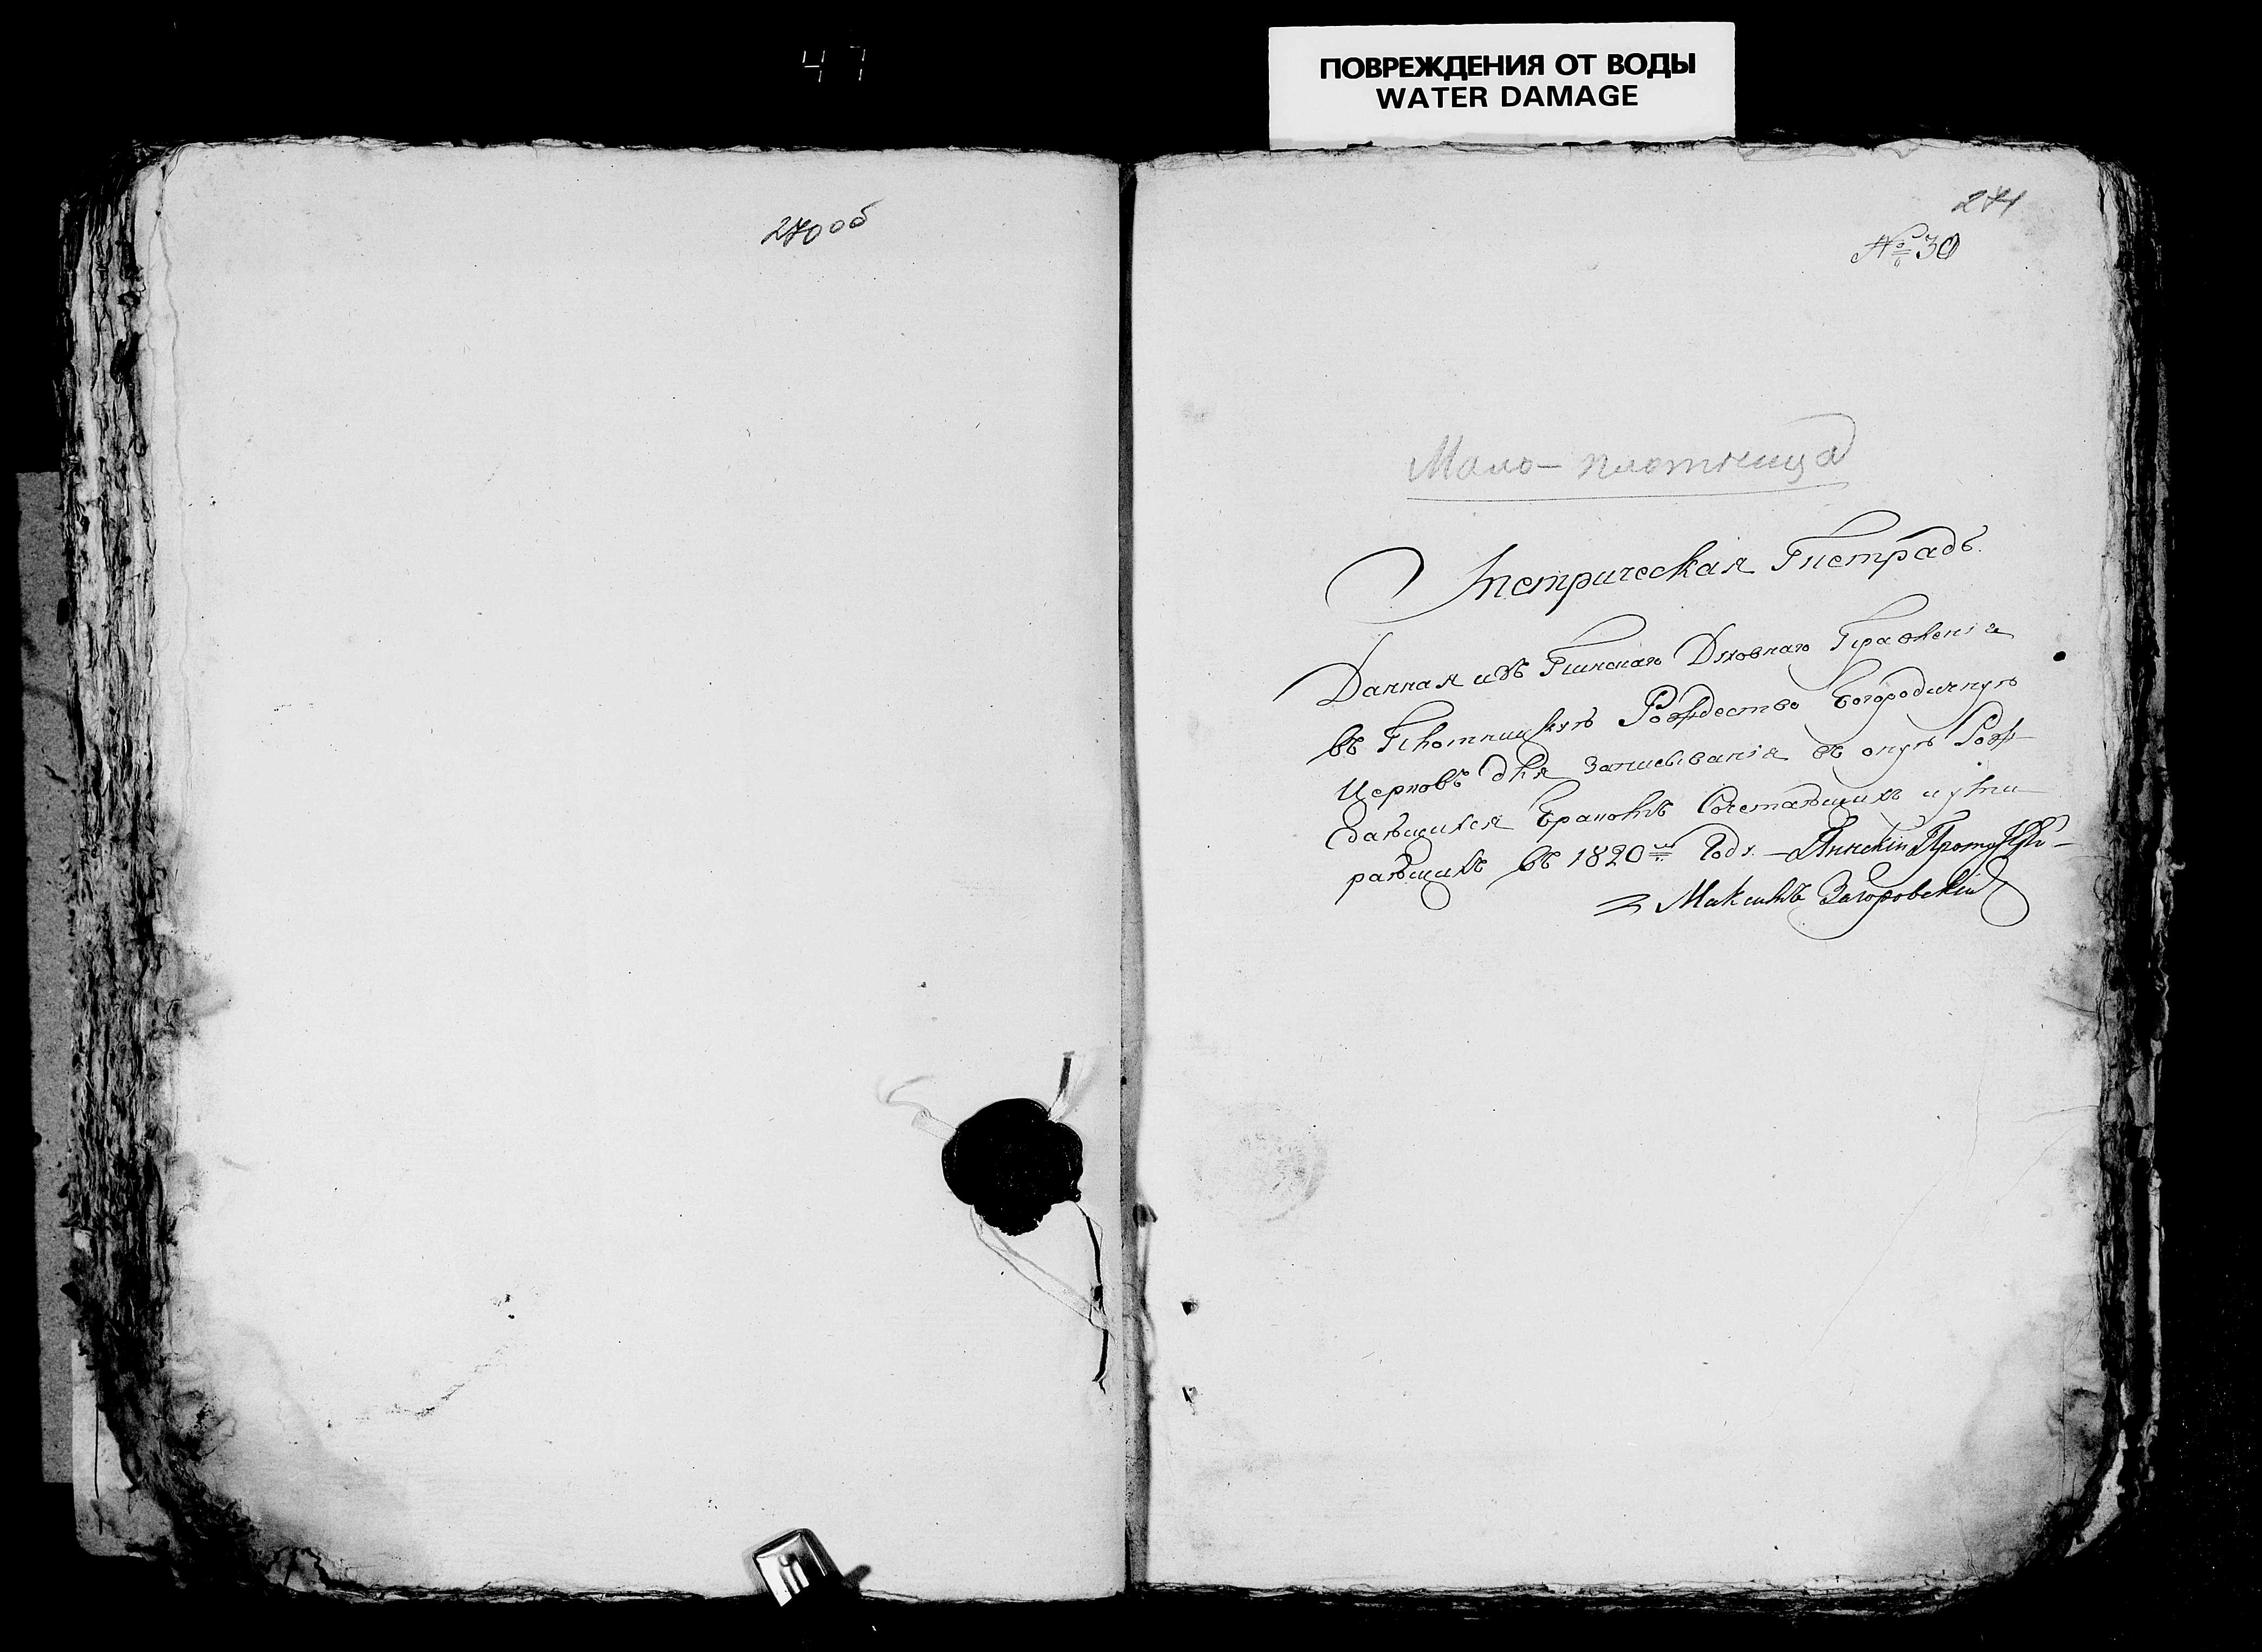 47
ПОВРЕЖДЕНИЯ ОТ ВОДЫ
WATER DAMAGE
270об
271
№ 30
Мало-плотница
Метрическая Тетрадь.
Данная изъ Пинскаго Духовнаго Правленія
въ Плотницкую Рождество Богородичную
Церковь для Записыванія въ оную Рож-
давшихся Бракомъ Сочетавшихъ и уми-
равшихъ въ 1820м Году. — Пинскій
Максимъ Загоровскій